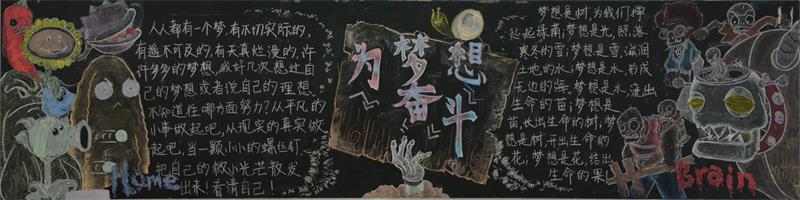 人人都有一个梦,有不切实际的,
有遥不可及的,有天真烂漫的,许
许多多的梦想,我好几次想过自
己的梦想或者说自己的理想
不知道往哪方面努力?从平凡的
小事做起吧,从现实的真实做
起吧,当一颗小小的螺丝钉.
把自己的微小光芒散发
出来!看清自己!
Home
为梦想
奋斗
梦想是树,为我们撑
起起
梦想是光,照
寒冬的雪;梦想是雪,滋润
土地的水;梦想是水,形成
无边的海,梦想是水,流出
生命的苗;梦想是
苗,长出生命的树,梦
想是树,开出生命的
花;梦想是花,结出
生命的果
Brain